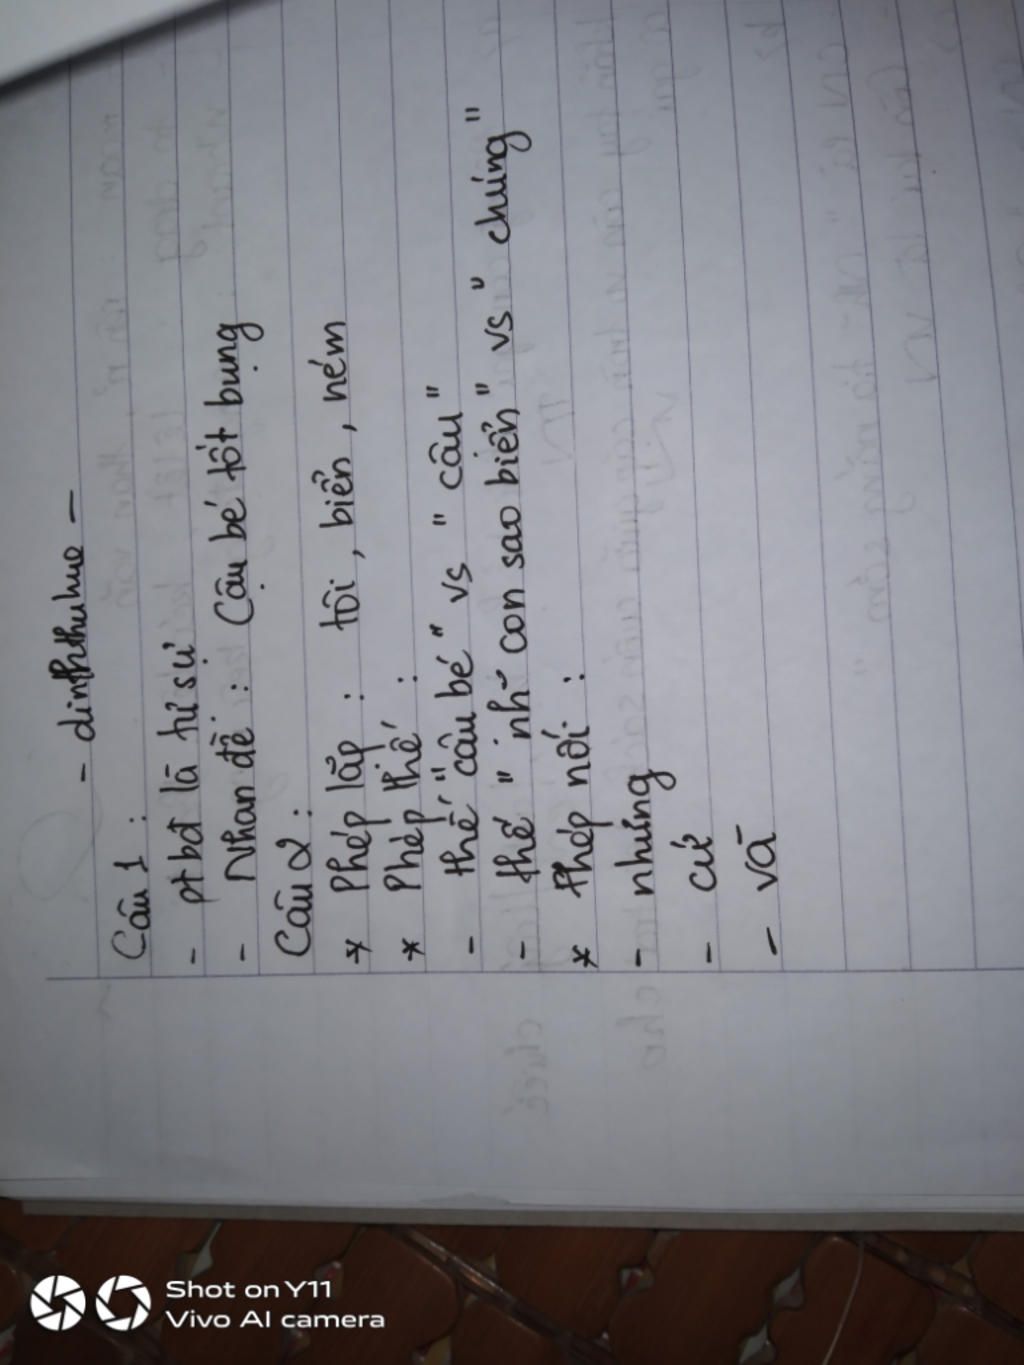 - dinhthuhue -
Câu 1 :
- ptbđ là tự sự
- Nhan đề : Cậu bé tốt bụng
Câu 2 :
* Phép lặp : tôi , biển , ném
* Phép thế :
- thế "cậu bé" vs "cậu"
- thế "nhữ con sao biển" vs "chúng"
* Phép nối :
- nhưng
- cứ
- và
Shot on Y11
Vivo AI camera